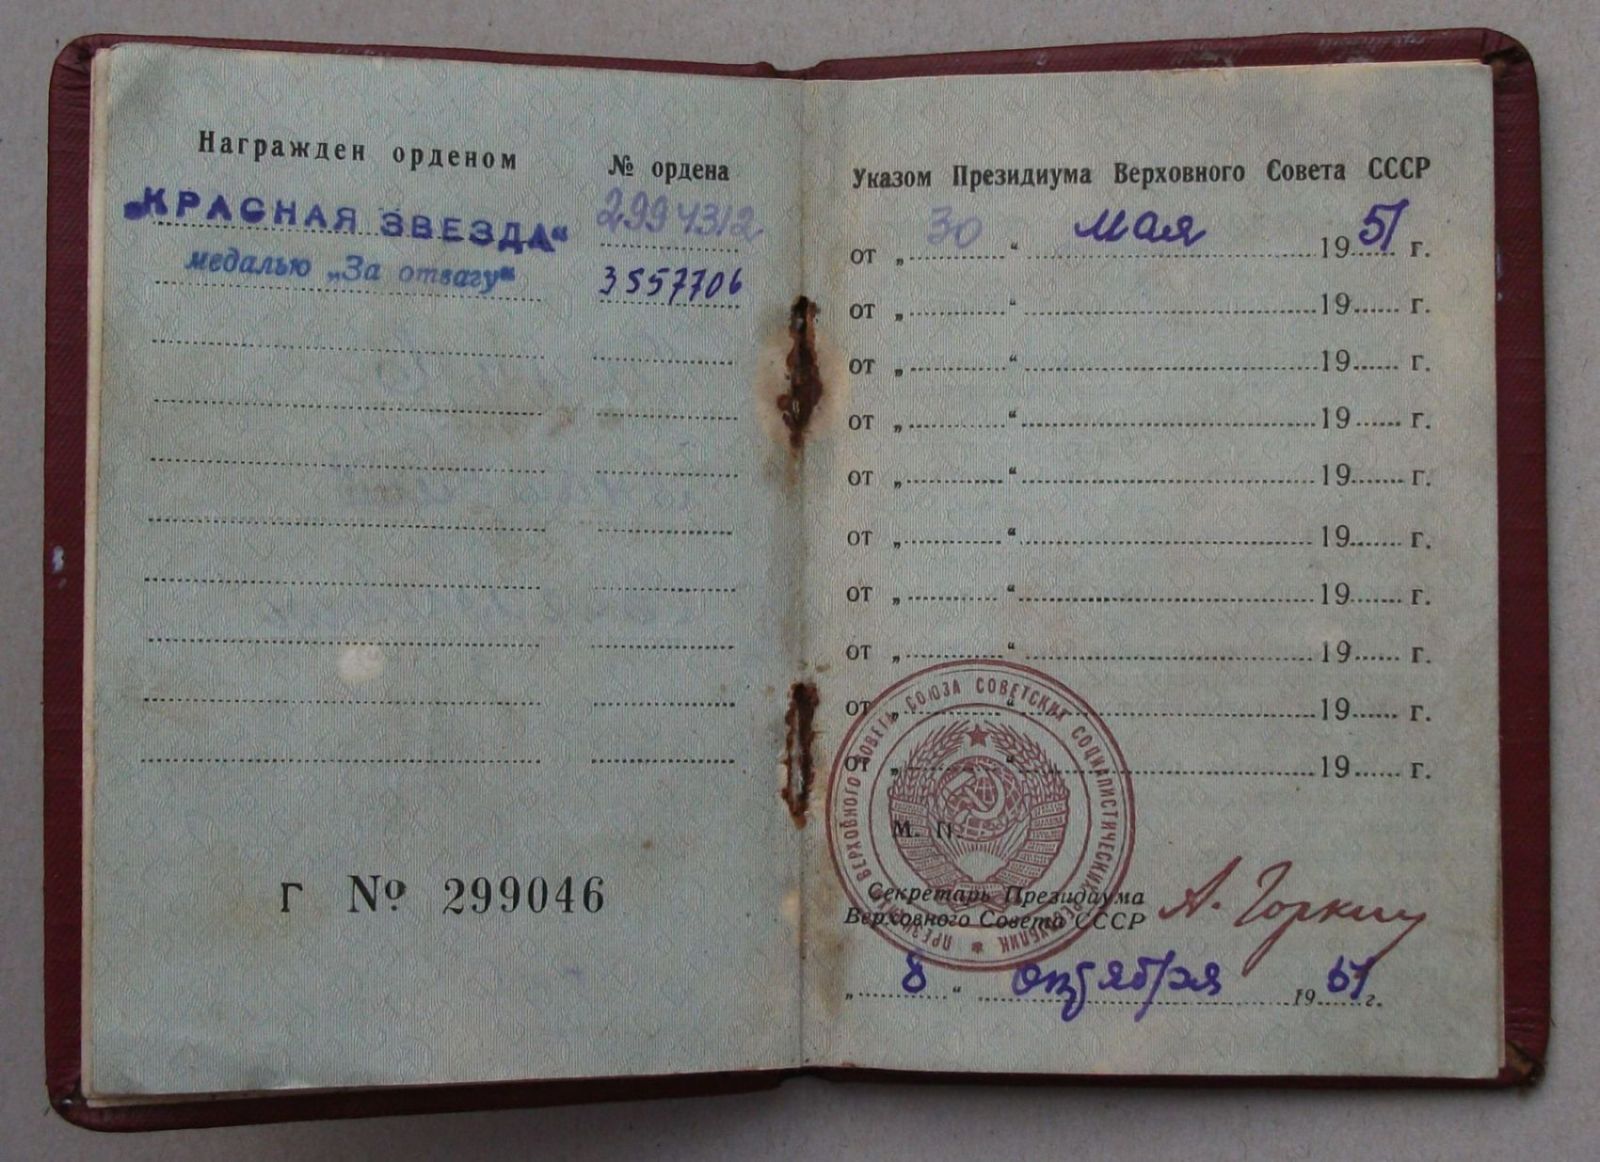 Награжден орденом
№ ордена
„КРАСНАЯ ЗВЕЗДА“ 2994312
медалью „За отвагу“ 3557706
Г № 299046
Указом Президиума Верховного Совета СССР
от „ 30 “ мая 1951 г.
от „ “ 19 г.
от „ “ 19 г.
от „ “ 19 г.
от „ “ 19 г.
от „ “ 19 г.
от „ “ 19 г.
от „ “ 19 г.
от „ “ 19 г.
от „ “ 19 г.
ПРЕЗИДИУМ ВЕРХОВНОГО СОВЕТА СОЮЗА СОВЕТСКИХ СОЦИАЛИСТИЧЕСКИХ РЕСПУБЛИК
М. П.
Секретарь Президиума
Верховного Совета СССР А. Горкин
„ 8 “ октября 1951 г.